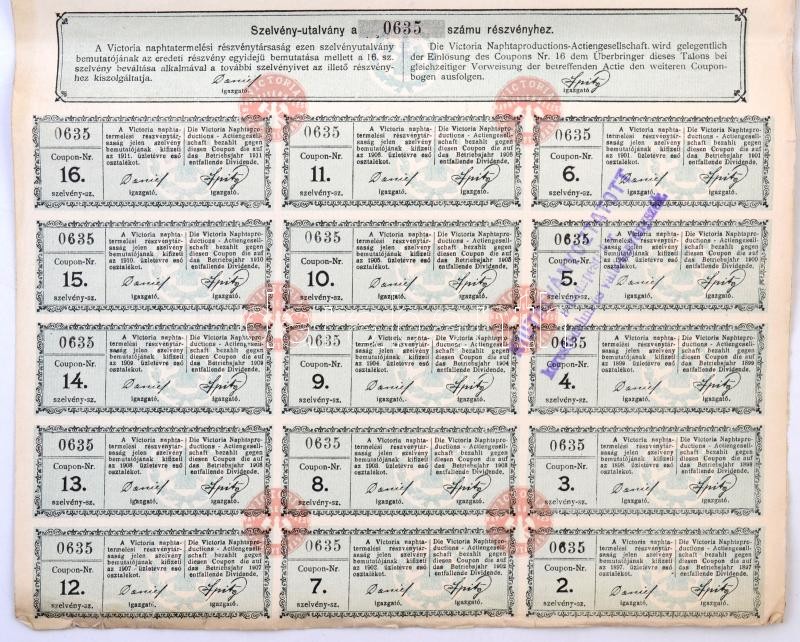 Szelvény-utalvány a 0635 számu részvényhez.
A Victoria naphtatermelési részvénytársaság ezen szelvényutalvány
bemutatójának az eredeti részvény egyidejű bemutatása mellett a 16. sz.
szelvény beváltása alkalmával a további szelvényivet az illető részvény-
hez kiszolgáltatja.
igazgató.
Die Victoria Naphtaproductions-Actiengesellschaft wird gelegentlich
der Einlösung des Coupons Nr. 16 dem Überbringer dieses Talons bei
gleichzeitiger Vorweisung der betreffenden Actie den weiteren Coupon-
bogen ausfolgen.
igazgató.
VICTORIA
VICTORIA
0635
Coupon-Nr.
16.
szelvény-sz.
A Victoria naphta-
termelési részvénytár-
saság jelen szelvény
bemutatójának kifizeti
az 1911. üzletévre eső
osztalékot.
Die Victoria Naphtapro-
ductions - Actiengesell-
schaft bezahlt gegen
diesen Coupon die auf
das Betriebsjahr 1911
entfallende Dividende.
igazgató.
igazgató.
0635
Coupon-Nr.
11.
szelvény-sz.
A Victoria naphta-
termelési részvénytár-
saság jelen szelvény
bemutatójának kifizeti
az 1906. üzletévre eső
osztalékot.
Die Victoria Naphtapro-
ductions - Actiengesell-
schaft bezahlt gegen
diesen Coupon die auf
das Betriebsjahr 1906
entfallende Dividende.
igazgató.
igazgató.
0635
Coupon-Nr.
6.
szelvény-sz.
A Victoria naphta-
termelési részvénytár-
saság jelen szelvény
bemutatójának kifizeti
az 1901. üzletévre eső
osztalékot.
Die Victoria Naphtapro-
ductions - Actiengesell-
schaft bezahlt gegen
diesen Coupon die auf
das Betriebsjahr 1901
entfallende Dividende.
igazgató.
igazgató.
0635
Coupon-Nr.
15.
szelvény-sz.
A Victoria naphta-
termelési részvénytár-
saság jelen szelvény
bemutatójának kifizeti
az 1910. üzletévre eső
osztalékot.
Die Victoria Naphtapro-
ductions - Actiengesell-
schaft bezahlt gegen
diesen Coupon die auf
das Betriebsjahr 1910
entfallende Dividende.
igazgató.
igazgató.
0635
Coupon-Nr.
10.
szelvény-sz.
A Victoria naphta-
termelési részvénytár-
saság jelen szelvény
bemutatójának kifizeti
az 1905. üzletévre eső
osztalékot.
Die Victoria Naphtapro-
ductions - Actiengesell-
schaft bezahlt gegen
diesen Coupon die auf
das Betriebsjahr 1905
entfallende Dividende.
igazgató.
igazgató.
0635
Coupon-Nr.
5.
szelvény-sz.
A Victoria naphta-
termelési részvénytár-
saság jelen szelvény
bemutatójának kifizeti
az 1900. üzletévre eső
osztalékot.
Die Victoria Naphtapro-
ductions - Actiengesell-
schaft bezahlt gegen
diesen Coupon die auf
das Betriebsjahr 1900
entfallende Dividende.
igazgató.
igazgató.
0635
Coupon-Nr.
14.
szelvény-sz.
A Victoria naphta-
termelési részvénytár-
saság jelen szelvény
bemutatójának kifizeti
az 1909. üzletévre eső
osztalékot.
Die Victoria Naphtapro-
ductions - Actiengesell-
schaft bezahlt gegen
diesen Coupon die auf
das Betriebsjahr 1909
entfallende Dividende.
igazgató.
igazgató.
0635
Coupon-Nr.
9.
szelvény-sz.
A Victoria naphta-
termelési részvénytár-
saság jelen szelvény
bemutatójának kifizeti
az 1904. üzletévre eső
osztalékot.
Die Victoria Naphtapro-
ductions - Actiengesell-
schaft bezahlt gegen
diesen Coupon die auf
das Betriebsjahr 1904
entfallende Dividende.
igazgató.
igazgató.
0635
Coupon-Nr.
4.
szelvény-sz.
A Victoria naphta-
termelési részvénytár-
saság jelen szelvény
bemutatójának kifizeti
az 1899. üzletévre eső
osztalékot.
Die Victoria Naphtapro-
ductions - Actiengesell-
schaft bezahlt gegen
diesen Coupon die auf
das Betriebsjahr 1899
entfallende Dividende.
igazgató.
igazgató.
0635
Coupon-Nr.
13.
szelvény-sz.
A Victoria naphta-
termelési részvénytár-
saság jelen szelvény
bemutatójának kifizeti
az 1908. üzletévre eső
osztalékot.
Die Victoria Naphtapro-
ductions - Actiengesell-
schaft bezahlt gegen
diesen Coupon die auf
das Betriebsjahr 1908
entfallende Dividende.
igazgató.
igazgató.
0635
Coupon-Nr.
8.
szelvény-sz.
A Victoria naphta-
termelési részvénytár-
saság jelen szelvény
bemutatójának kifizeti
az 1903. üzletévre eső
osztalékot.
Die Victoria Naphtapro-
ductions - Actiengesell-
schaft bezahlt gegen
diesen Coupon die auf
das Betriebsjahr 1903
entfallende Dividende.
igazgató.
igazgató.
0635
Coupon-Nr.
3.
szelvény-sz.
A Victoria naphta-
termelési részvénytár-
saság jelen szelvény
bemutatójának kifizeti
az 1898. üzletévre eső
osztalékot.
Die Victoria Naphtapro-
ductions - Actiengesell-
schaft bezahlt gegen
diesen Coupon die auf
das Betriebsjahr 1898
entfallende Dividende.
igazgató.
igazgató.
0635
Coupon-Nr.
12.
szelvény-sz.
A Victoria naphta-
termelési részvénytár-
saság jelen szelvény
bemutatójának kifizeti
az 1907. üzletévre eső
osztalékot.
Die Victoria Naphtapro-
ductions - Actiengesell-
schaft bezahlt gegen
diesen Coupon die auf
das Betriebsjahr 1907
entfallende Dividende.
igazgató.
igazgató.
0635
Coupon-Nr.
7.
szelvény-sz.
A Victoria naphta-
termelési részvénytár-
saság jelen szelvény
bemutatójának kifizeti
az 1902. üzletévre eső
osztalékot.
Die Victoria Naphtapro-
ductions - Actiengesell-
schaft bezahlt gegen
diesen Coupon die auf
das Betriebsjahr 1902
entfallende Dividende.
igazgató.
igazgató.
0635
Coupon-Nr.
2.
szelvény-sz.
A Victoria naphta-
termelési részvénytár-
saság jelen szelvény
bemutatójának kifizeti
az 1897. üzletévre eső
osztalékot.
Die Victoria Naphtapro-
ductions - Actiengesell-
schaft bezahlt gegen
diesen Coupon die auf
das Betriebsjahr 1897
entfallende Dividende.
igazgató.
igazgató.